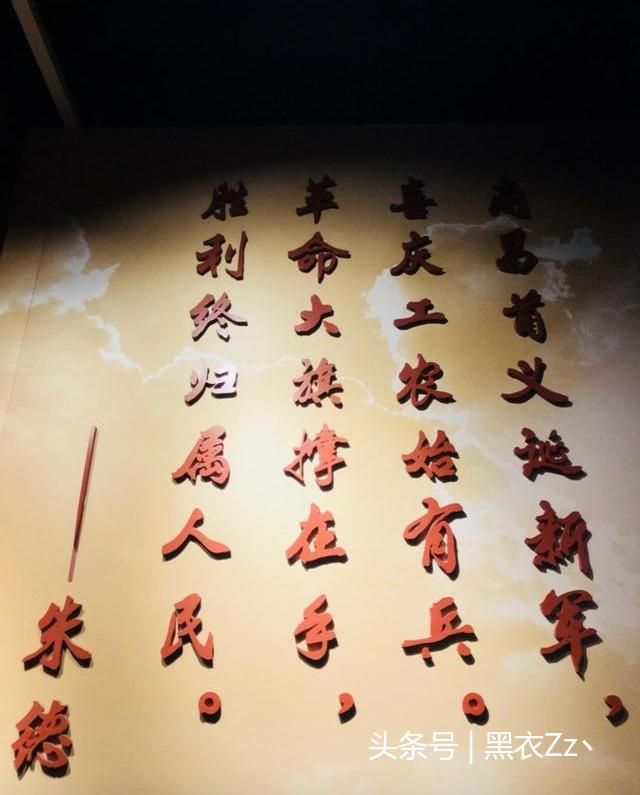 南昌首义诞新军，
喜庆工农始有兵。
革命大旗撑在手，
胜利终归属人民。
——朱德
头条号 | 黑衣Zz丶